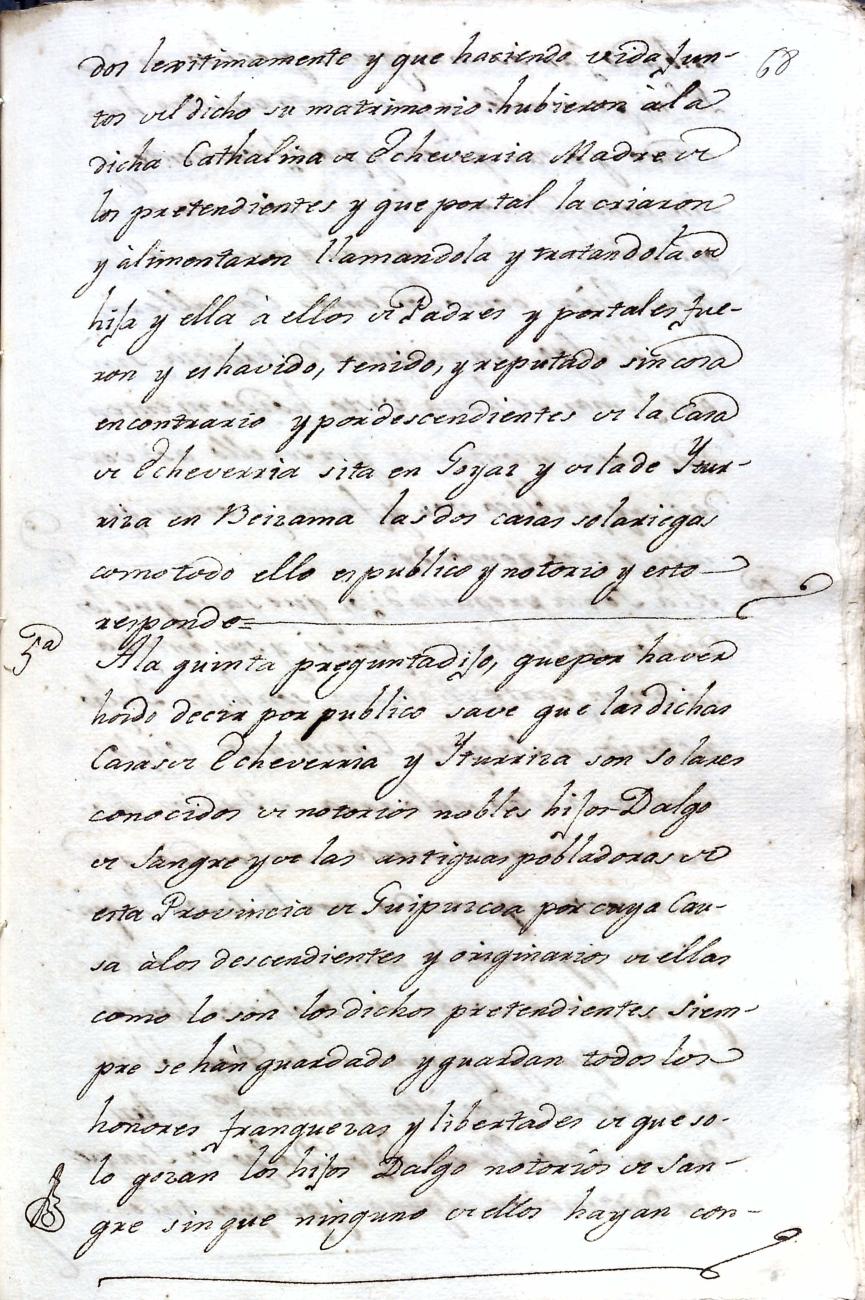 68
dos lexitimamente y que haciendo vida jun-
tos del dicho su matrimonio hubieron à la
dicha Cathalina de Echeverria Madre de
los pretendientes y que por tal la criaron
y àlimentaron llamandola y tratandola de
hija y ella à ellos de Padres y por tales fue-
ron y es havido, tenido, y reputado sin cosa
en contrario y por descendientes de la Casa
de Echeverria sita en Goyaz y de la de Ytur-
riza en Beizama las dos casas solariegas
como todo ello es publico y notorio y esto
responde=
5ª
A la quinta pregunta dijo, que por haver
hoido decir por publico save que las dichas
Casas de Echeverria y Yturriza son solares
conocidos de notorios nobles hijos Dalgo
de Sangre y de las antiguas pobladoras de
esta Provincia de Guipuzcoa por cuya Cau-
sa à los descendientes y originarios de ellas
como lo son los dichos pretendientes siem-
pre se hàn guardado y guardan todos los
honores franquezas y libertades de que so-
lo gozan los hijos Dalgo notorios de San-
gre sin que ninguno de ellos hayan con-